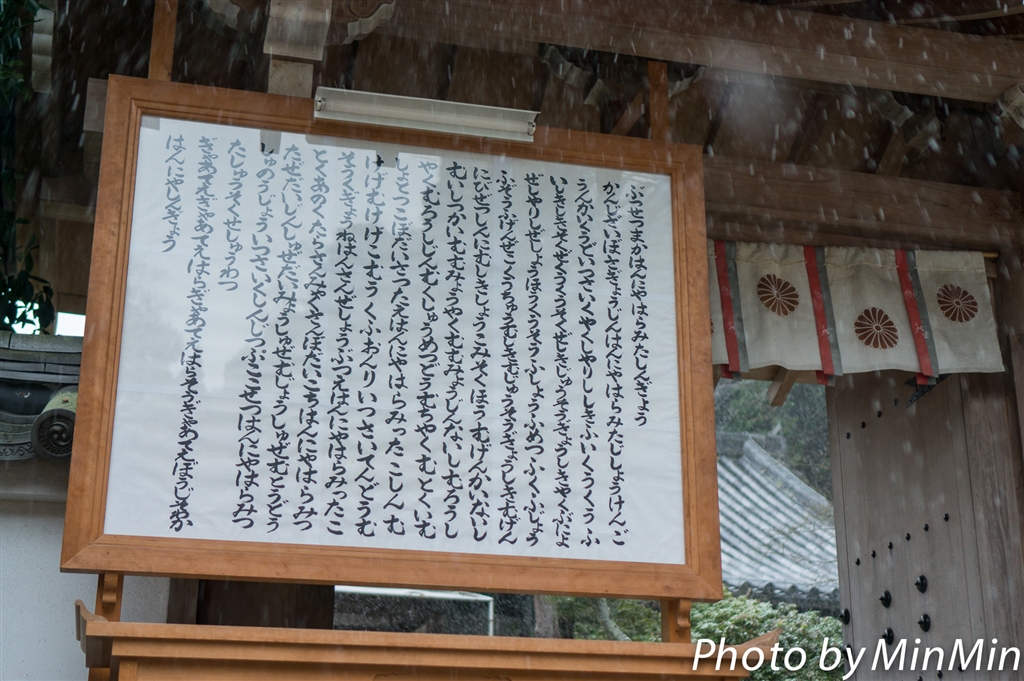 ぶっせつまかはんにゃはらみたしんぎょう
かんじざいぼさぎょうじんはんにゃはらみたじしょうけんご
うんかいくうどいっさいくやくしゃりししきふいくうくうふ
いしきしきそくぜくうくうそくぜしきじゅそうぎょうしきやくぶにょ
ぜしゃりしぜしょほうくうそうふしょうふめつふくふじょう
ふぞうふげんぜこくうちゅうむしきむじゅそうぎょうしきむげん
にびぜっしんにむしきしょうこうみそくほうむげんかいないし
むいしきかいむむみょうやくむむみょうじんないしむろうし
やくむろうしじんむくしゅうめつどうむちやくむとくいむ
しょとっこぼだいさったえはんにゃはらみったこしんむ
けげむけげこむうくふおんりいっさいてんどうむ
そうくぎょうねはんさんぜしょうぶつえはんにゃはらみったこ
とくあのくたらさんみゃくさんぼだいこちはんにゃはらみつ
たぜだいしんしゅぜだいみょうしゅぜむじょうしゅぜむとうどう
しゅのうじょういっさいくしんじつふここせつはんにゃはらみつ
たしゅうそくせつしゅうわつ
ぎゃあてえぎゃあてえはらぎゃあてえはらそうぎゃあてえぼうじそわか
はんにゃしんぎょう
Photo by MinMin